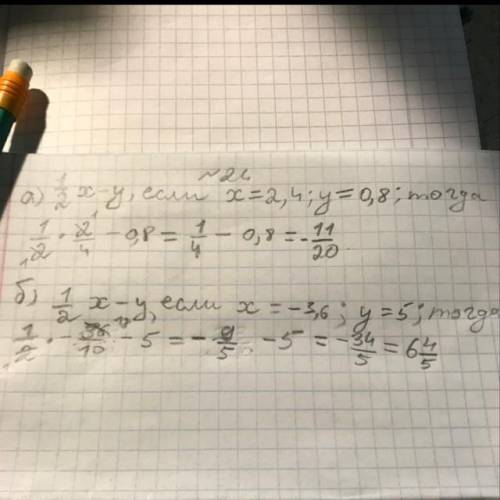 №24
а) 1/2 x-y, если x=2,4; y=0,8; тогда
1/2 · 2/4 - 0,8 = 1/4 - 0,8 = -11/20.
б) 1/2 x-y, если x=-3,6; y=5; тогда
1/2 · -36/10 - 5 = -9/5 - 5 = -34/5 = 6 4/5